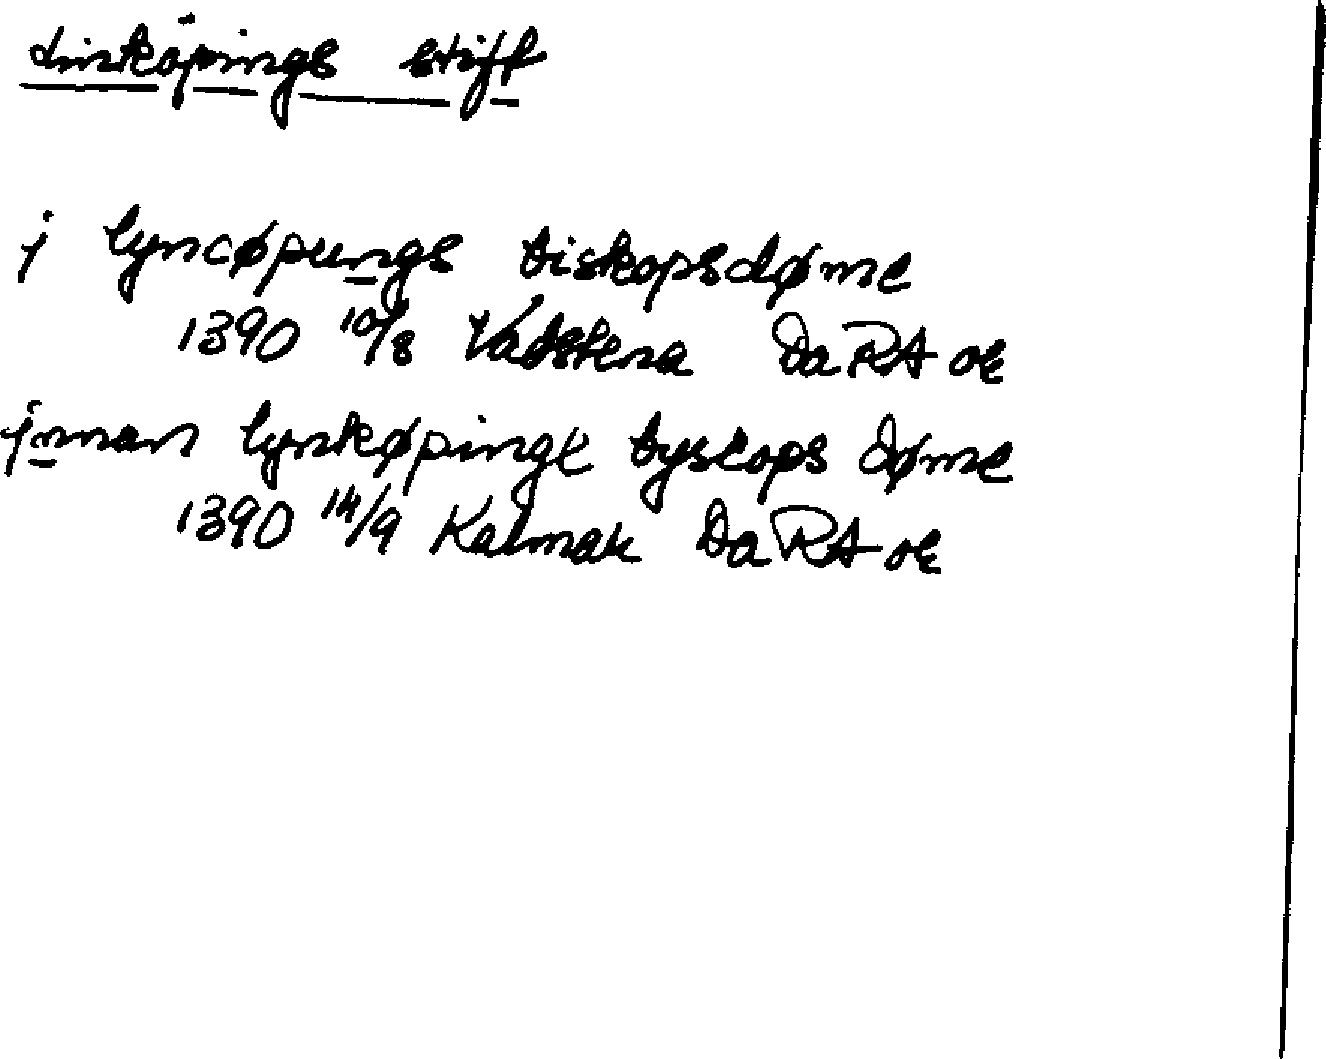 Linköpings stift
j lyncøpungs biskopsdøme
1390 10/8 Vadstena DaRA or
jnnan lynkøpinge byscops døme
1390 14/9 Kalmar DaRA or